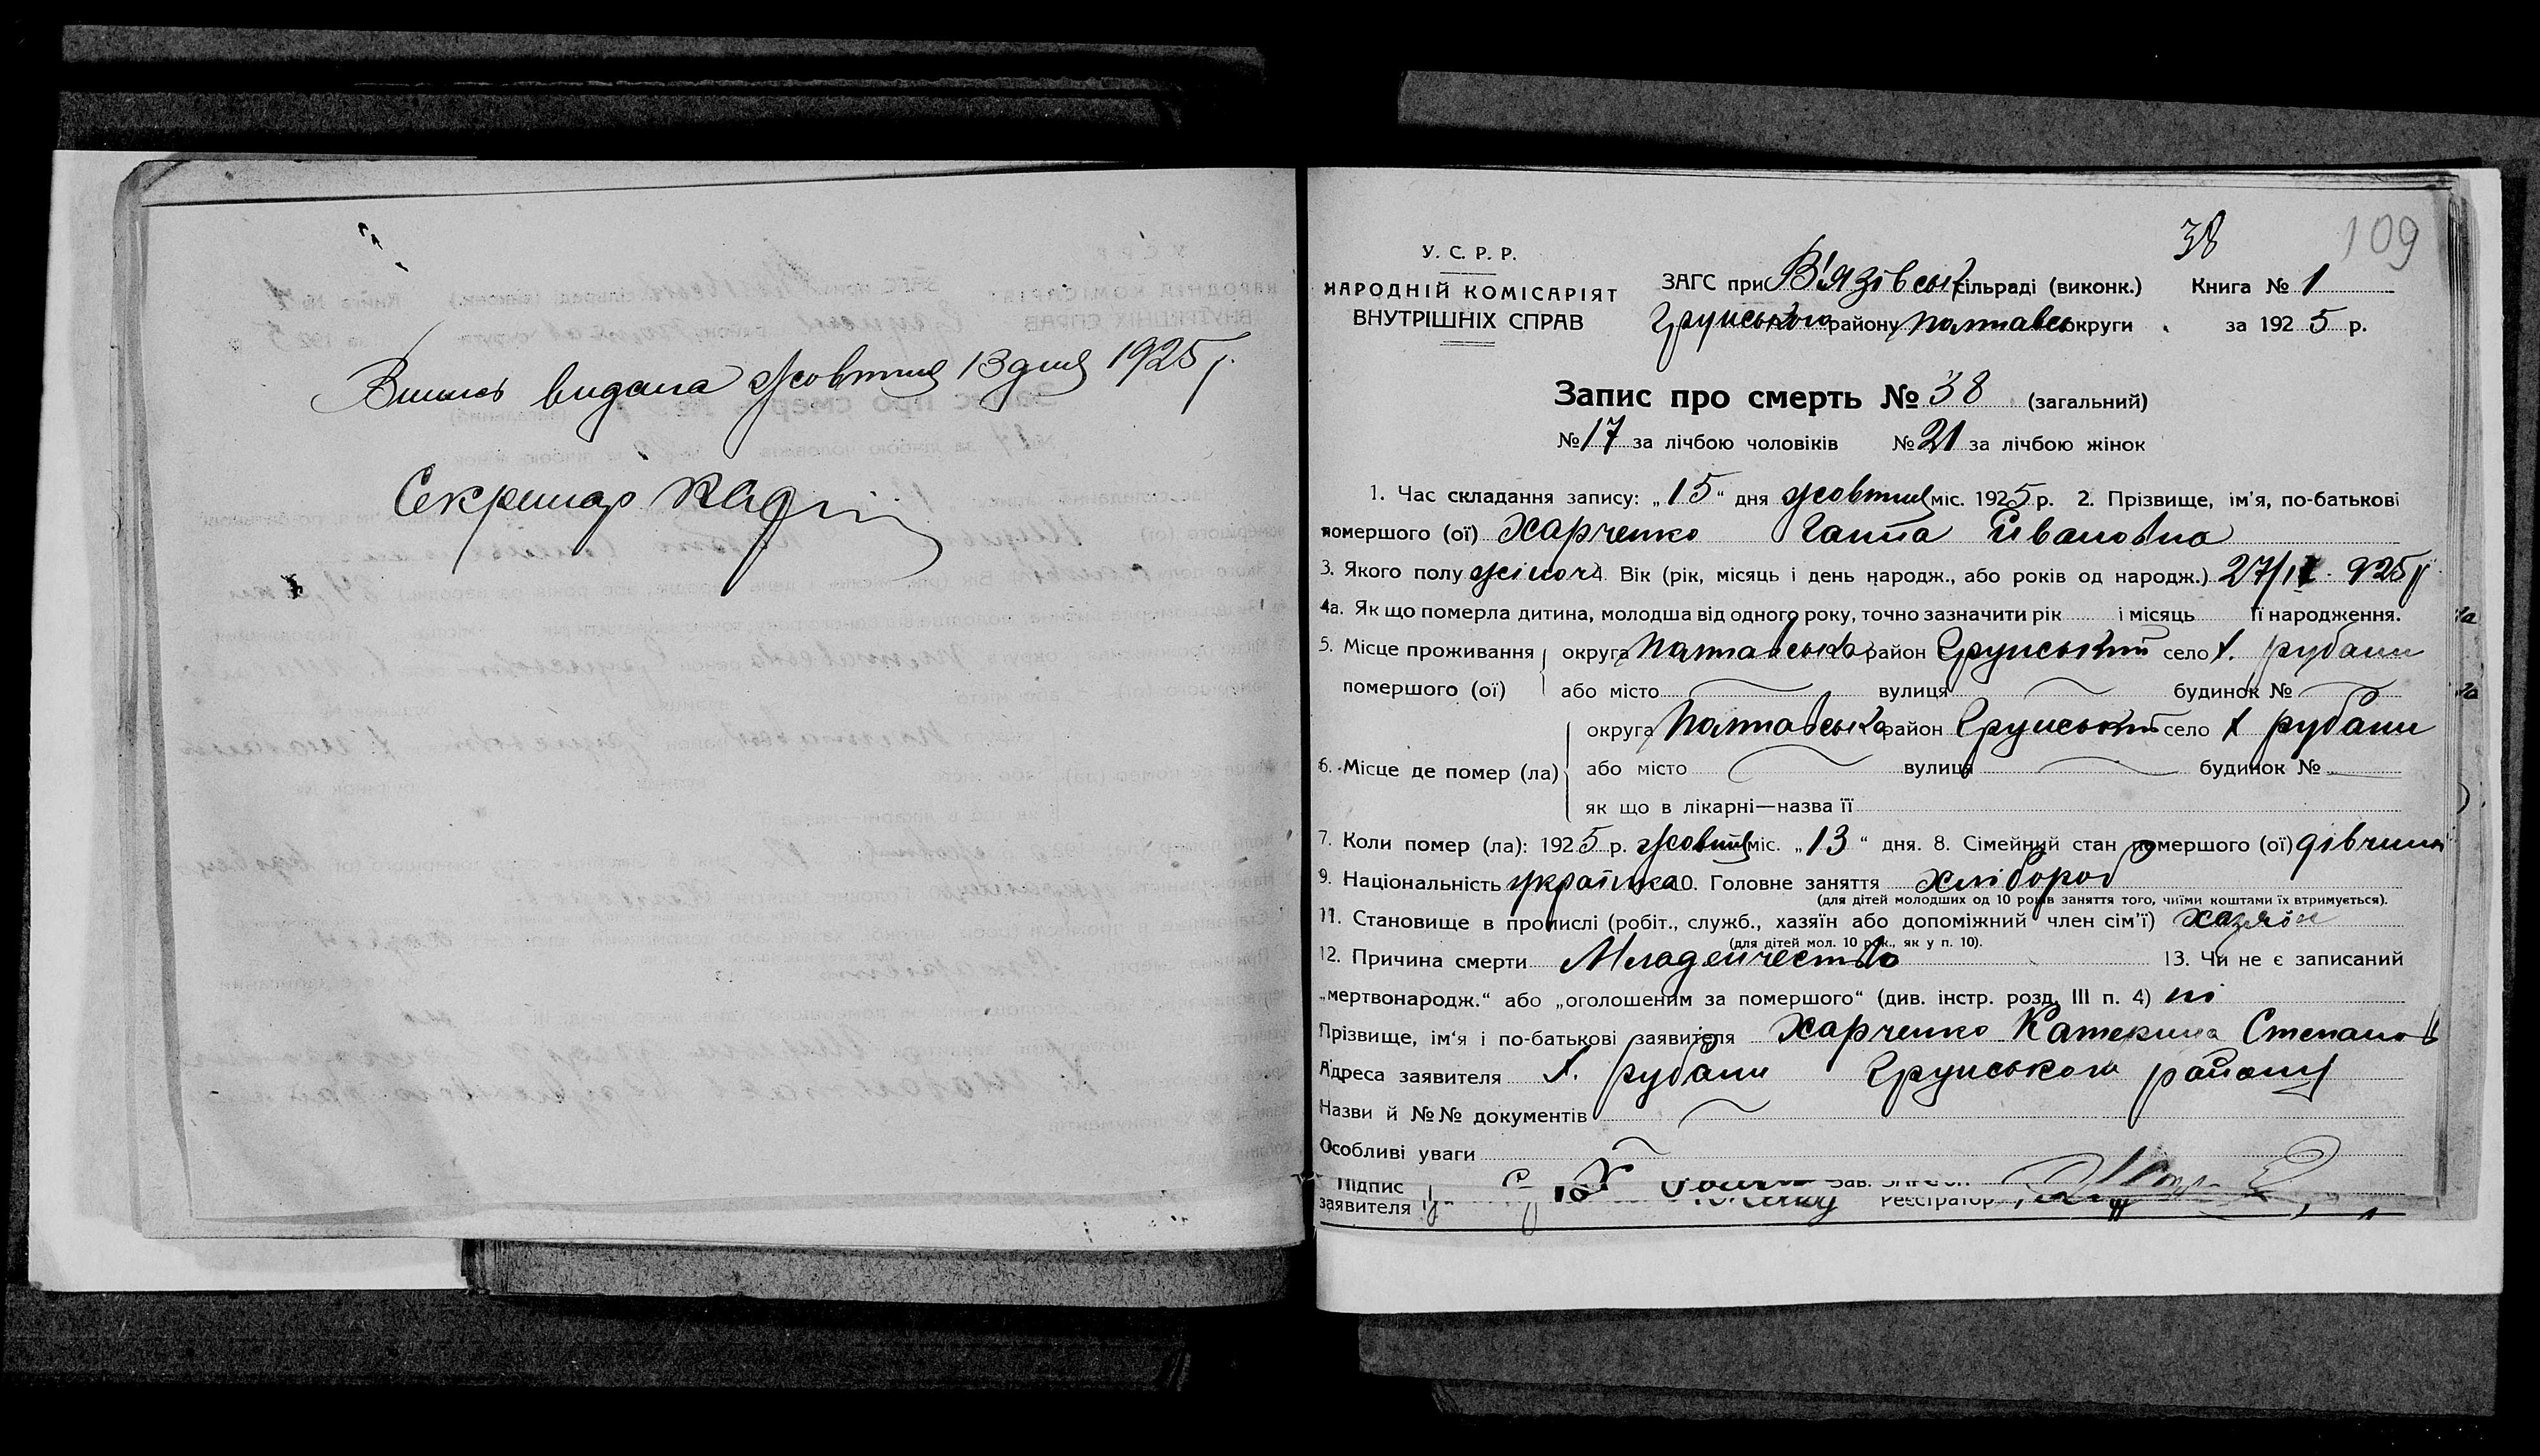 Випись видана жовтня 13 дня 1925 р.
Секретар
38
109
У. С. Р. Р.
НАРОДНІЙ КОМІСАРІЯТ
ВНУТРІШНІХ СПРАВ
ЗАГС при В'язівськ сільраді (виконк.) Книга № 1
Грунського району Полтавсь округи за 1925 р.
Запис про смерть № 38 (загальний)
№ 17 за лічбою чоловіків № 21 за лічбою жінок
1. Час складання запису: „15“ дня жовтня міс. 1925 р. 2. Прізвище, ім'я, по-батькові
помершого (ої) Харченко Ганна Івановна
3. Якого полу жіноч 4. Вік (рік, місяць і день народж., або років од народж.) 27/IX 925 р
4а. Як що померла дитина, молодша від одного року, точно зазначити рік і місяць її народження.
5. Місце проживання помершого (ої) округа Полтавська район Грунський село х. рубани
або місто вулиця будинок №
6. Місце де помер (ла) округа Полтавська район Грунський село х рубани
або місто вулиця будинок №
як що в лікарні—назва її
7. Коли помер (ла): 1925 р. жовтня міс. „13“ дня. 8. Сімейний стан помершого (ої) дівчина
9. Національність українка 10. Головне заняття хлібороб
(для дітей молодших од 10 років заняття того, чиїми коштами їх втримується).
11. Становище в промислі (робіт., служб., хазяїн або допоміжний член сім'ї) хазяїн
(для дітей мол. 10 рок., як у п. 10).
12. Причина смерти Младенчество 13. Чи не є записаний
„мертвонародж.“ або „оголошеним за помершого“ (див. інстр. розд. III п. 4) ні
Прізвище, ім'я і по-батькові заявителя Харченко Катерина Степанов
Адреса заявителя х. рубани Грунського району
Назви й №№ документів
Особливі уваги
Підпис
заявителя
Зав. ЗАГСом
Реєстратор